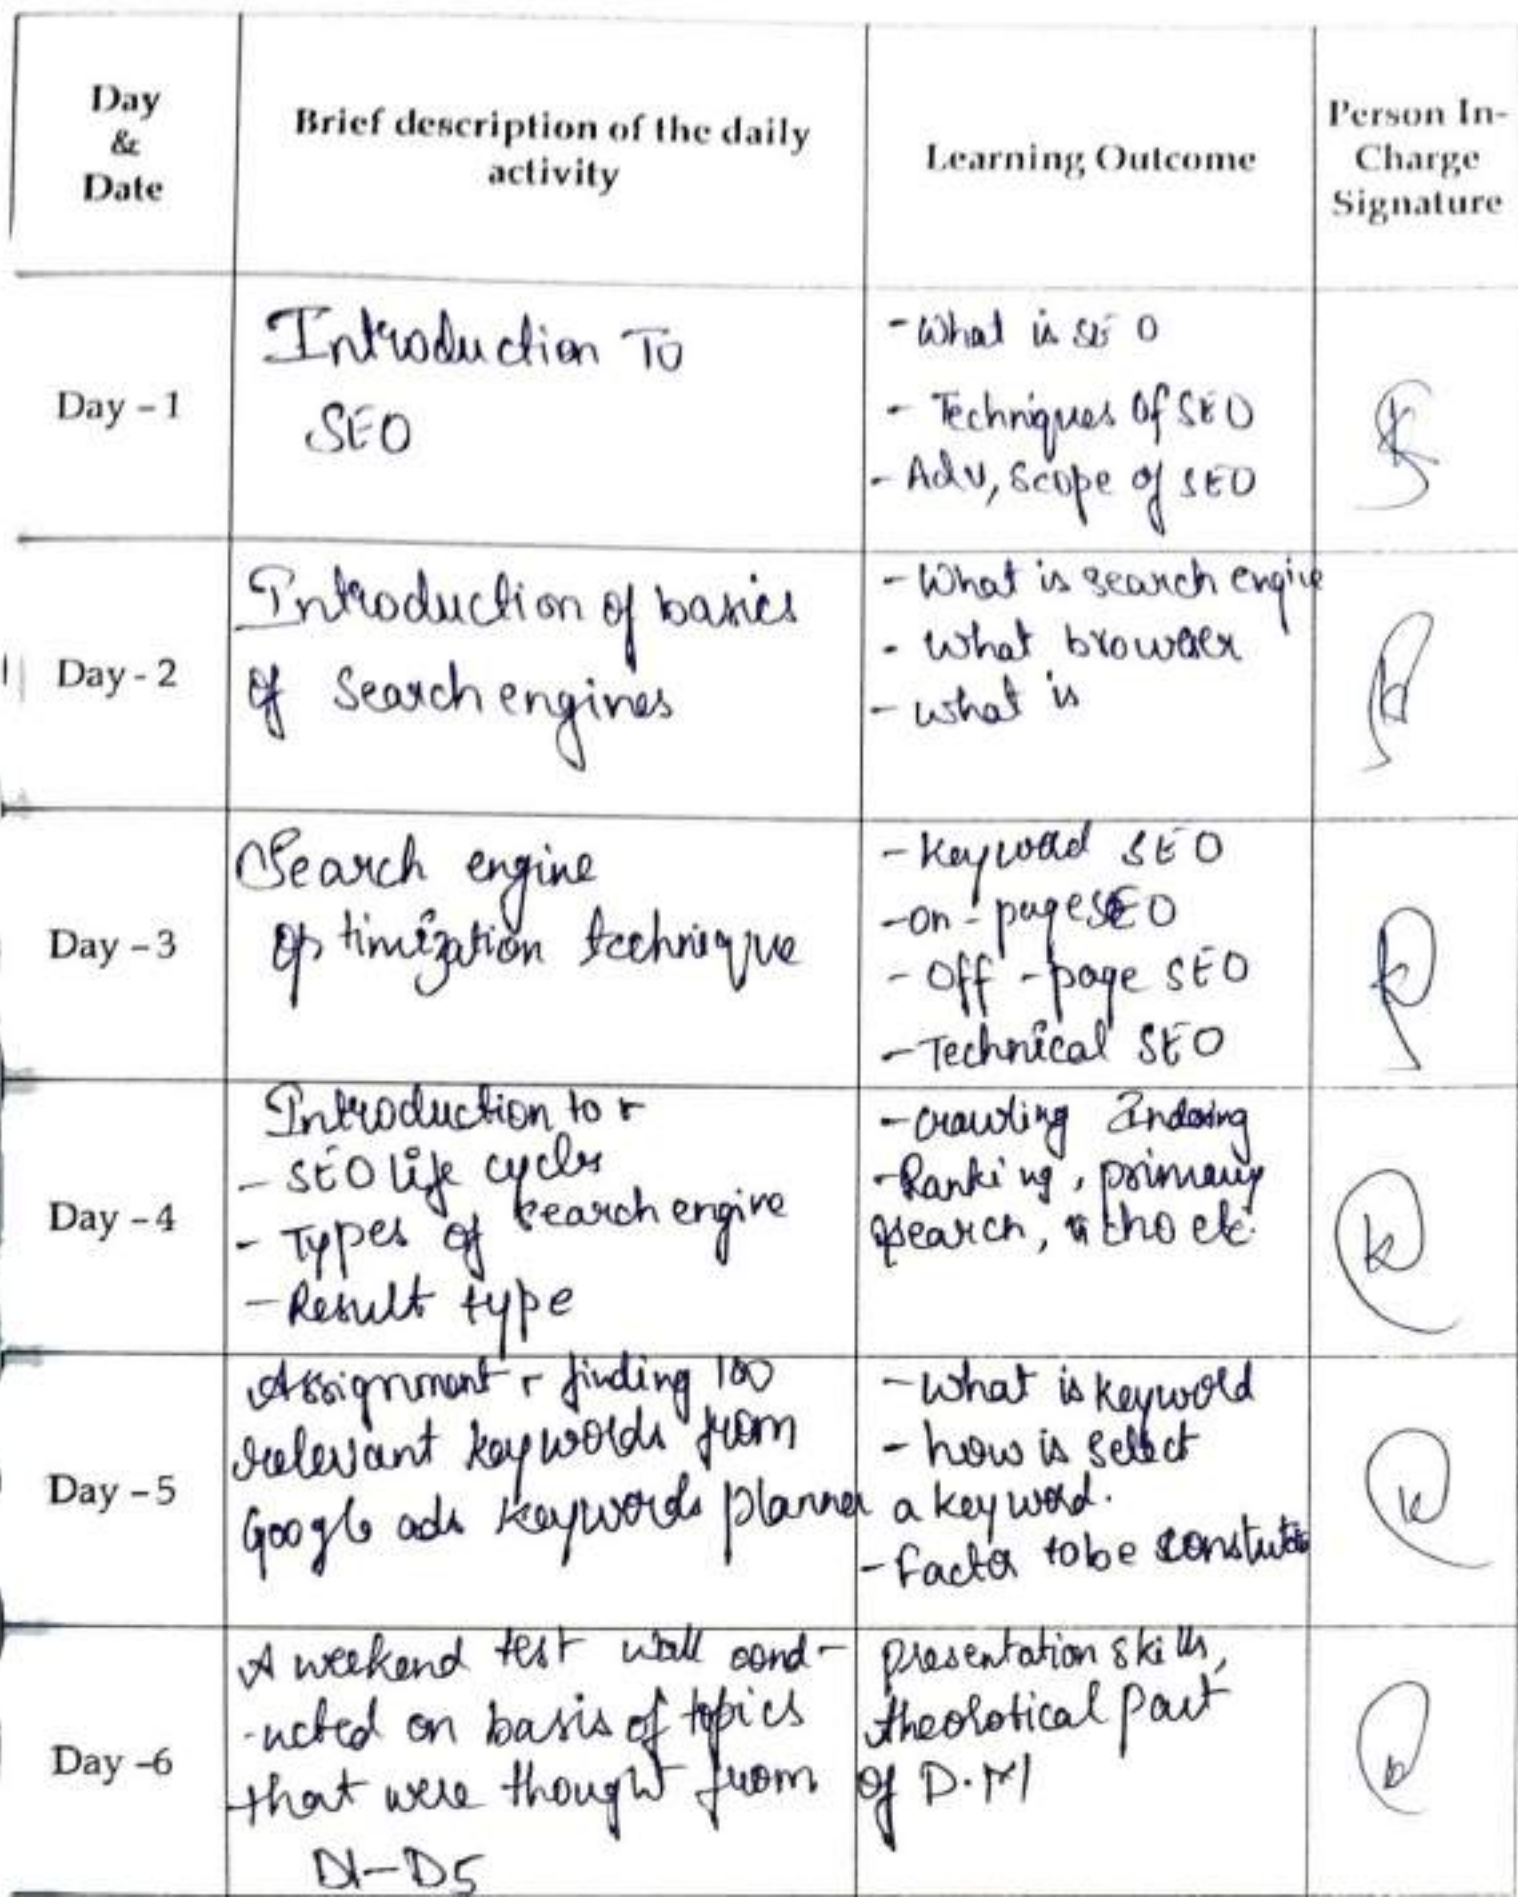 Day
&
Date
Brief description of the daily
activity
Learning Outcome
Person In-
Charge
Signature
Day – 1
Introduction To
SEO
- What is SEO
- Techniques Of SEO
- Adv, Scope of SEO
Day - 2
Introduction of basics
of Search engines
- What is search engine
- What browser
- what is
Day – 3
Search engine
Optimization technique
- Keyword SEO
- on - page SEO
- Off - page SEO
- Technical SEO
Day – 4
Introduction to
- SEO life cycles
- Types of search engine
- Result type
- crawling Indexing
- Ranking, primary
search, etc
Day – 5
Assignment finding 100
relevant keywords from
Google ads keywords planner
- What is keyword
- how is select
a keyword.
- Factor to be
Day –6
A weekend test wall cond-
-ucted on basis of topics
that were thought from
D1-D5
presentation skills,
theorotical part
of D.M